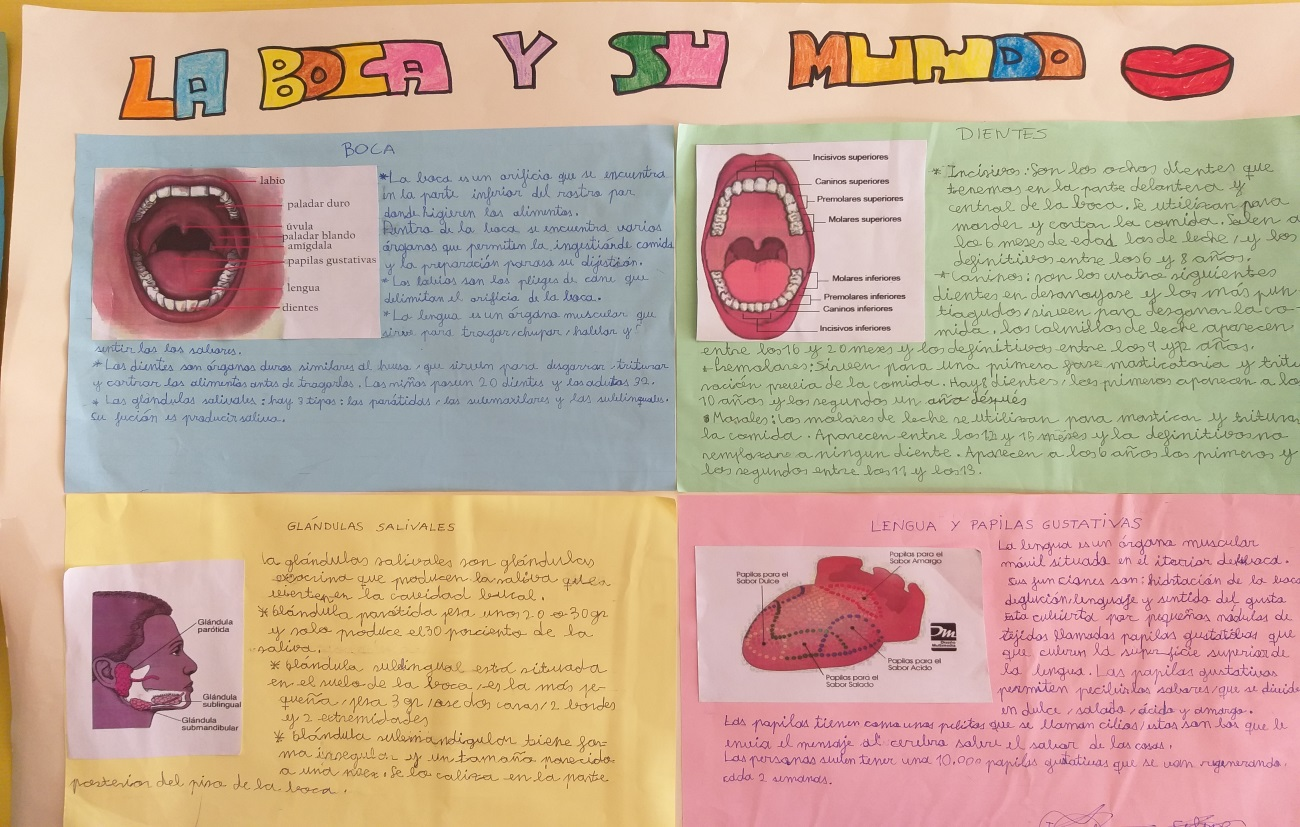 LA BOCA Y SU MUNDO
BOCA
labio
paladar duro
úvula
paladar blando
amígdala
papilas gustativas
lengua
dientes
*La boca es un orificio que se encuentra
en la parte inferior del rostro por
donde higieren los alimentos.
Dentro de la boca se encuentra varios
órganos que permiten la ingestión de comida
y la preparación para su digistión.
*Los labios son los plieges de carne que
delimitan el orificio de la boca.
*La lengua es un órgano muscular que
sirve para tragar, chupar, hablar y
sentir los los sabores.
*Los dientes son órganos duros similares al hueso, que sirven para desgarrar, triturar
y cortar los alimentos antes de tragarlos. Los niños poseen 20 dientes y los adutos 32.
*Las glándulas salivales: hay 3 tipos: las parótidas, las submaxilares y las sublinguales.
Su fución es producir saliva.
DIENTES
Incisivos superiores
Caninos superiores
Premolares superiores
Molares superiores
Molares inferiores
Premolares inferiores
Caninos inferiores
Incisivos inferiores
* Incisivos: Son los ochos dientes que
tenemos en la parte delantera y
central de la boca. Se utilizan para
morder y cortar la comida. Salen a
los 6 meses de edad los de leche, y los
definitivos entre los 6 y 8 años.
*Caninos: son los cuatro siguientes
dientes en desarroyarse y los más pun
tiagudos, sirven para desgarrar la co-
mida, los colmillos de leche aparecen
entre los 16 y 20 meses y los definitivos entre los 9 y 12 años.
*Premolares: Sirven para una primera fase masticatoria y tritu
ración previa de la comida. Hay 8 dientes, los primeros aparecen a los
10 años y los segundos un año después
Morales: Los molares de leche se utilizan para masticar y tritura
la comida. Aparecen entre los 12 y 15 meses y la definitivos no
remplazan a ningun diente. Aparecen a los 6 años los primeros y
los segundos entre los 11 y los 13.
GLÁNDULAS SALIVALES
Glándula
parótida
Glándula
sublingual
Glándula
submandibular
la glándulas salivales son glándulas
exocrina que producen la saliva que es
vierten en la cavidad bucal.
*Glándula parótida pesa unos 20 o 30 gr
y solo produce el 30 porciento de la
saliva.
* Glándula sublingual está situada
en el suelo de la boca, es la más pe-
queña, pesa 3 gr, dos caras, 2 bordes
y 2 extremidades
* Glándula submandigular tiene for-
ma irregular y un tamaño parecido
a una nuez. Se localiza en la parte
posterior del piso de la boca.
LENGUA Y PAPILAS GUSTATIVAS
Papilas para el
Sabor Dulce
Papilas para el
Sabor Amargo
Papilas para el
Sabor Acido
Papilas para el
Sabor Salado
Dm
La lengua es un órgano muscular
móvil situada en el iterior de boca.
Sus funciones son: hidratación de la boca
deglución, lenguaje y sentido del gusta
Esta cubierta por pequeñas módulos de
tejidos llamados papilas gustatibas que
que cubren la superficie superior de
la lengua. Las papilas gustativas
permiten pecibir los sabores, que se divide
en dulce, salado, ácido y amargo.
Las papilas tienen como unos pelitos que se llaman cilios, estos son los que le
envia el mensaje al cerebro sobre el sabor de las cosas.
Las personas suelen tener una 10.000 papilas gustativas que se van regenerando.
cada 2 semanas.